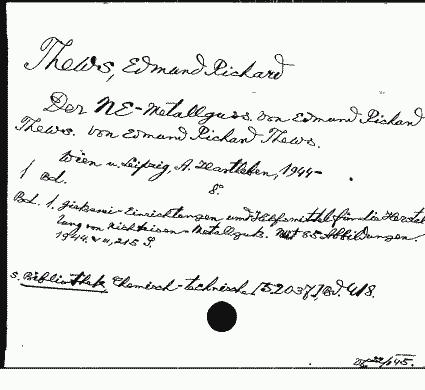 Thews, Edmund Richard
Der NE-Metallguss. von Edmund Richard
Thews. von Edmund Richard Thews.
Wien u. Leipzig, A. Hartleben, 1944-
1 Bd. 8.
Bd. 1. Giesserei-Einrichtungen und Hilfsmittel für die Herstel
lung von Nichteisen-Metallguss. Mit 85 Abbildungen.
1944. 215 S.
s. Bibliothek, Chemisch-technische [52037] Bd. 418.